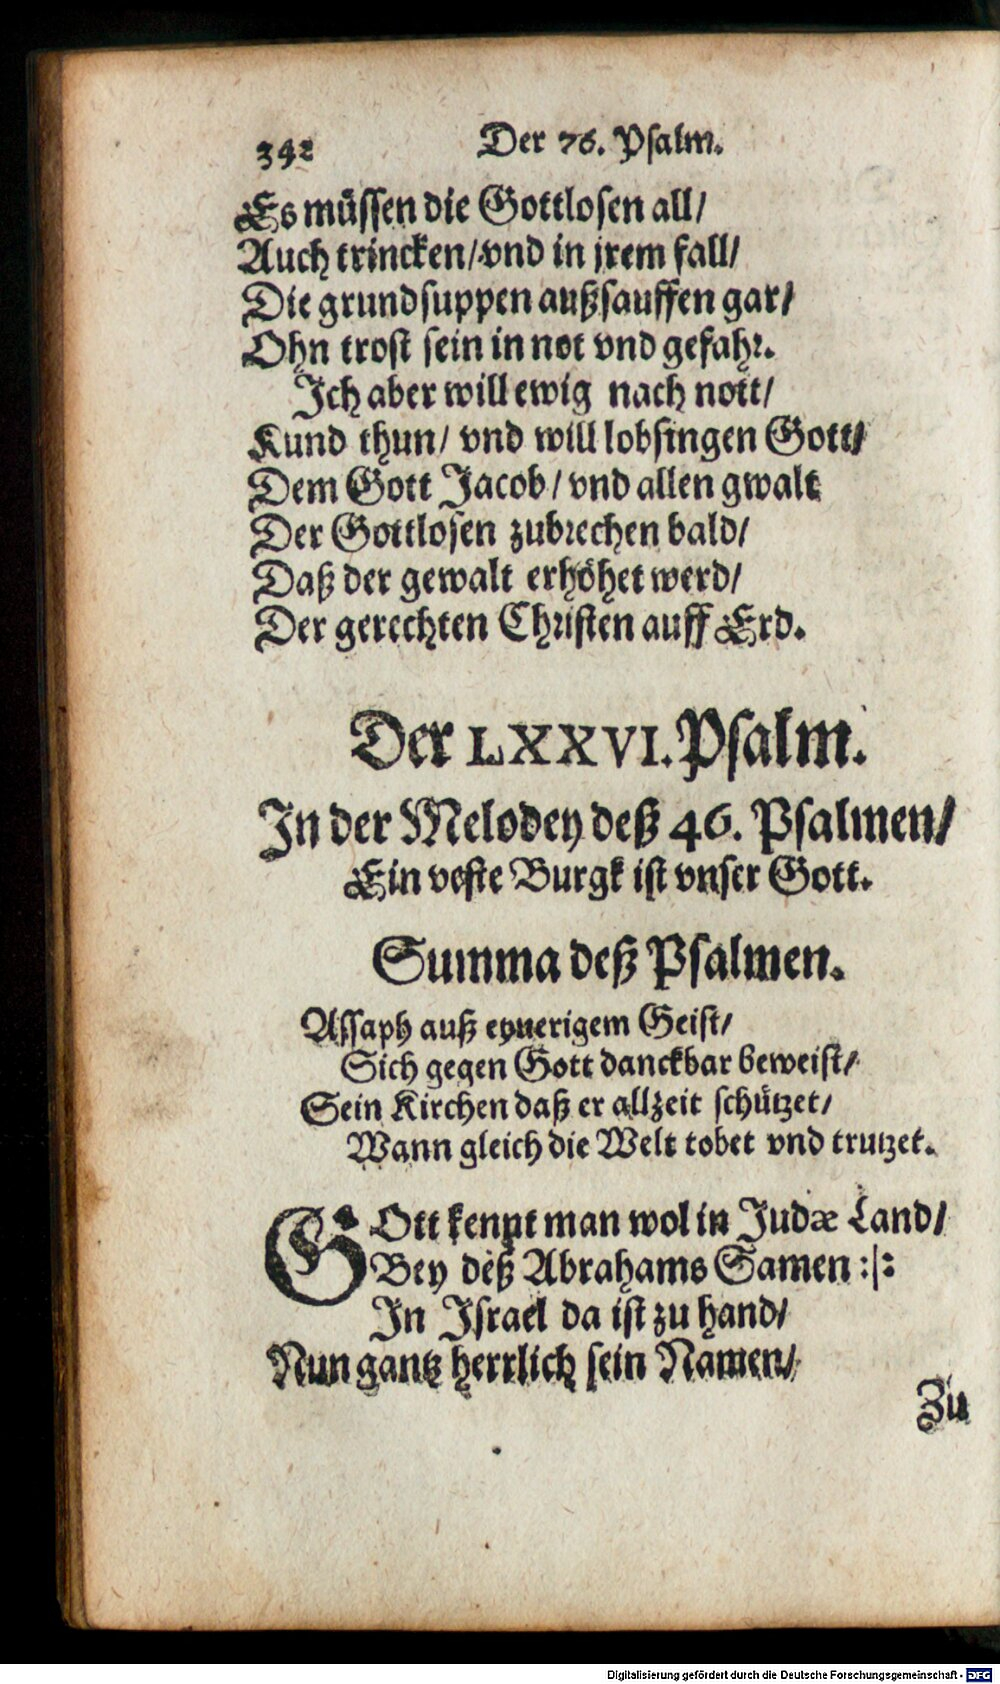 342 Der 76. Psalm.
Es müssen die Gottlosen all/
Auch trincken/ vnd in jrem fall/
Die grundsuppen außsauffen gar/
Ohn trost sein in not vnd gefahr.
Ich aber will ewig nach nott/
Kund thun/ vnd will lobsingen Gott/
Dem Gott Jacob/ vnd allen gwalt
Der Gottlosen zubrechen bald/
Daß der gewalt erhöhet werd/
Der gerechten Christen auff Erd.
Der LXXVI. Psalm.
In der Melodey deß 46. Psalmen/
Ein veste Burgk ist vnser Gott.
Summa deß Psalmen.
Assaph auß eyuerigem Geist/
Sich gegen Gott danckbar beweist/
Sein Kirchen daß er allzeit schützet/
Wann gleich die Welt tobet vnd trutzet.
GOtt kennt man wol in Judæ Land/
Bey deß Abrahams Samen :|:
In Israel da ist zu hand/
Nun gantz herrlich sein Namen/
Zu
Digitalisierung gefördert durch die Deutsche Forschungsgemeinschaft - DFG